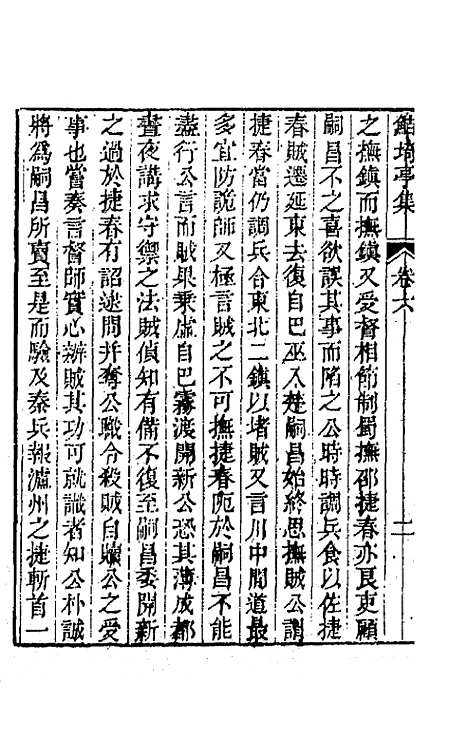 鮚埼亭集 卷六 二
之撫鎮而撫鎮又受督相節制蜀撫邵捷春亦良吏顧
嗣昌不之喜欲誤其事而陷之公時時調兵食以佐捷
春賊遷延東去復自巴巫入楚嗣昌始終思撫賊公謂
捷春當仍調兵合東北二鎮以堵賊又言川中間道最
多宜防詭師又極言賊之不可撫捷春阨於嗣昌不能
盡行公言而賊果乘虛自巴霧渡開新公恐其薄成都
晝夜講求守禦之法賊偵知有備不復至嗣昌委開新
之過於捷春有詔逮問并奪公職令殺賊自贖公之受
事也嘗奏言督師實心辦賊其功可就識者知公朴誠
將爲嗣昌所賣至是而驗及秦兵報瀘州之捷斬首一